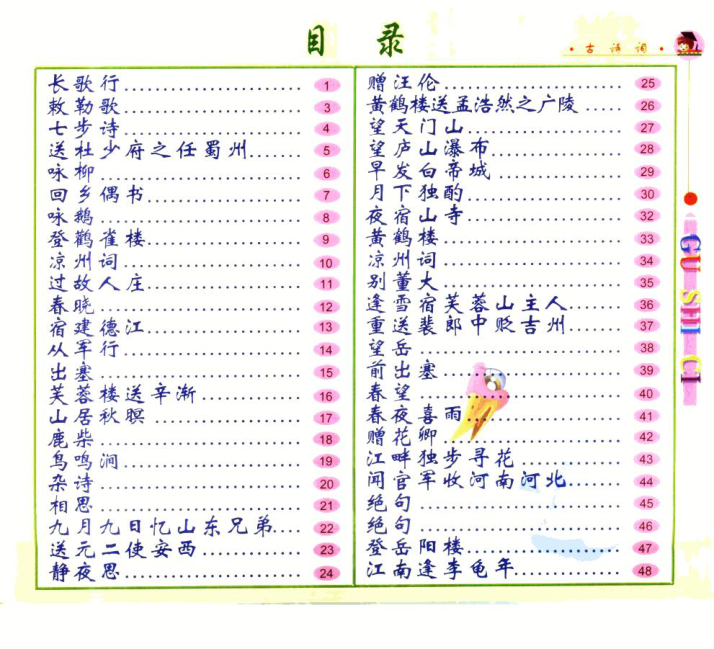 目 录
·古诗词·
长歌行 1
敕勒歌 3
七步诗 4
送杜少府之任蜀州 5
咏柳 6
回乡偶书 7
咏鹅 8
登鹳雀楼 9
凉州词 10
过故人庄 11
春晓 12
宿建德江 13
从军行 14
出塞 15
芙蓉楼送辛渐 16
山居秋暝 17
鹿柴 18
鸟鸣涧 19
杂诗 20
相思 21
九月九日忆山东兄弟 22
送元二使安西 23
静夜思 24
赠汪伦 25
黄鹤楼送孟浩然之广陵 26
望天门山 27
望庐山瀑布 28
早发白帝城 29
月下独酌 30
夜宿山寺 32
黄鹤楼 33
凉州词 34
别董大 35
逢雪宿芙蓉山主人 36
重送裴郎中贬吉州 37
望岳 38
前出塞 39
春望 40
春夜喜雨 41
赠花卿 42
江畔独步寻花 43
闻官军收河南河北 44
绝句 45
绝句 46
登岳阳楼 47
江南逢李龟年 48
GU SHI CI